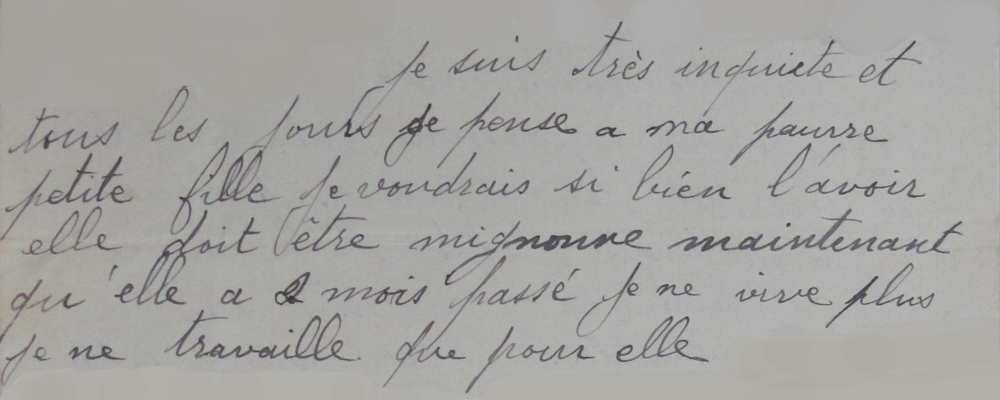 Je suis très inquiete et
tous les jours je pense a ma pauvre
petite fille Je voudrais si bien l'avoir
elle doit être mignonne maintenant
qu'elle a 2 mois passé Je ne vive plus
Je ne travaille que pour elle